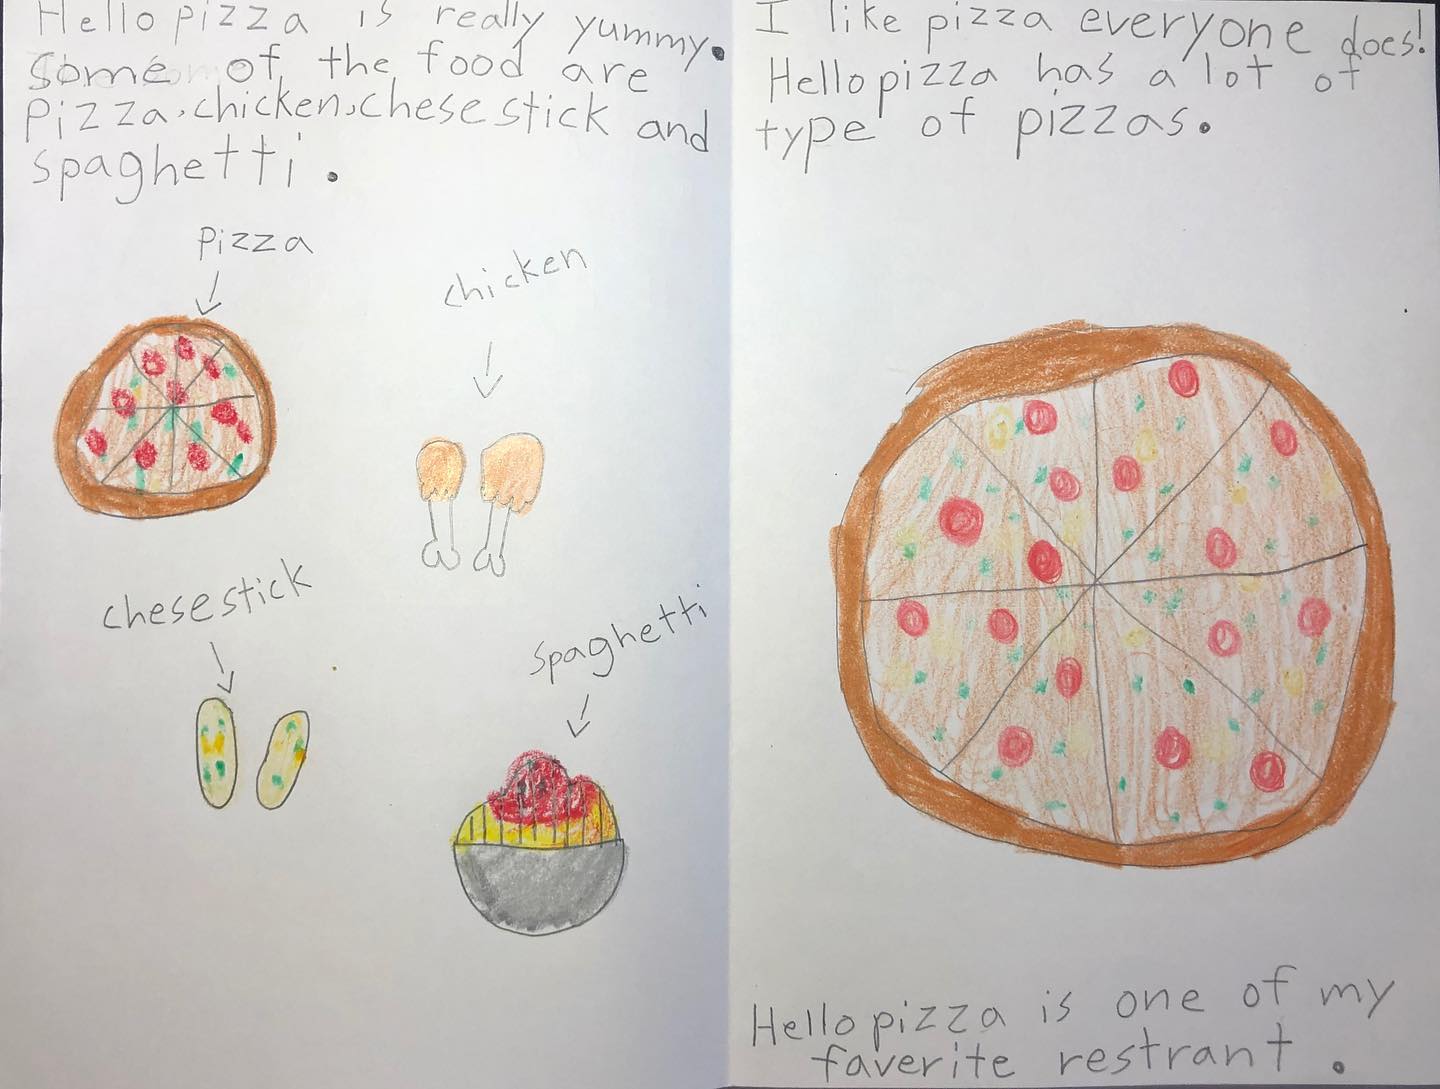 Hello pizza is really yummy.
Some of the food are
Pizza, chicken, chese stick and
spaghetti.
Pizza
chicken
chese stick
spaghetti
I like pizza everyone does!
Hello pizza has a lot of
type of pizzas.
Hello pizza is one of my
faverite restrant.